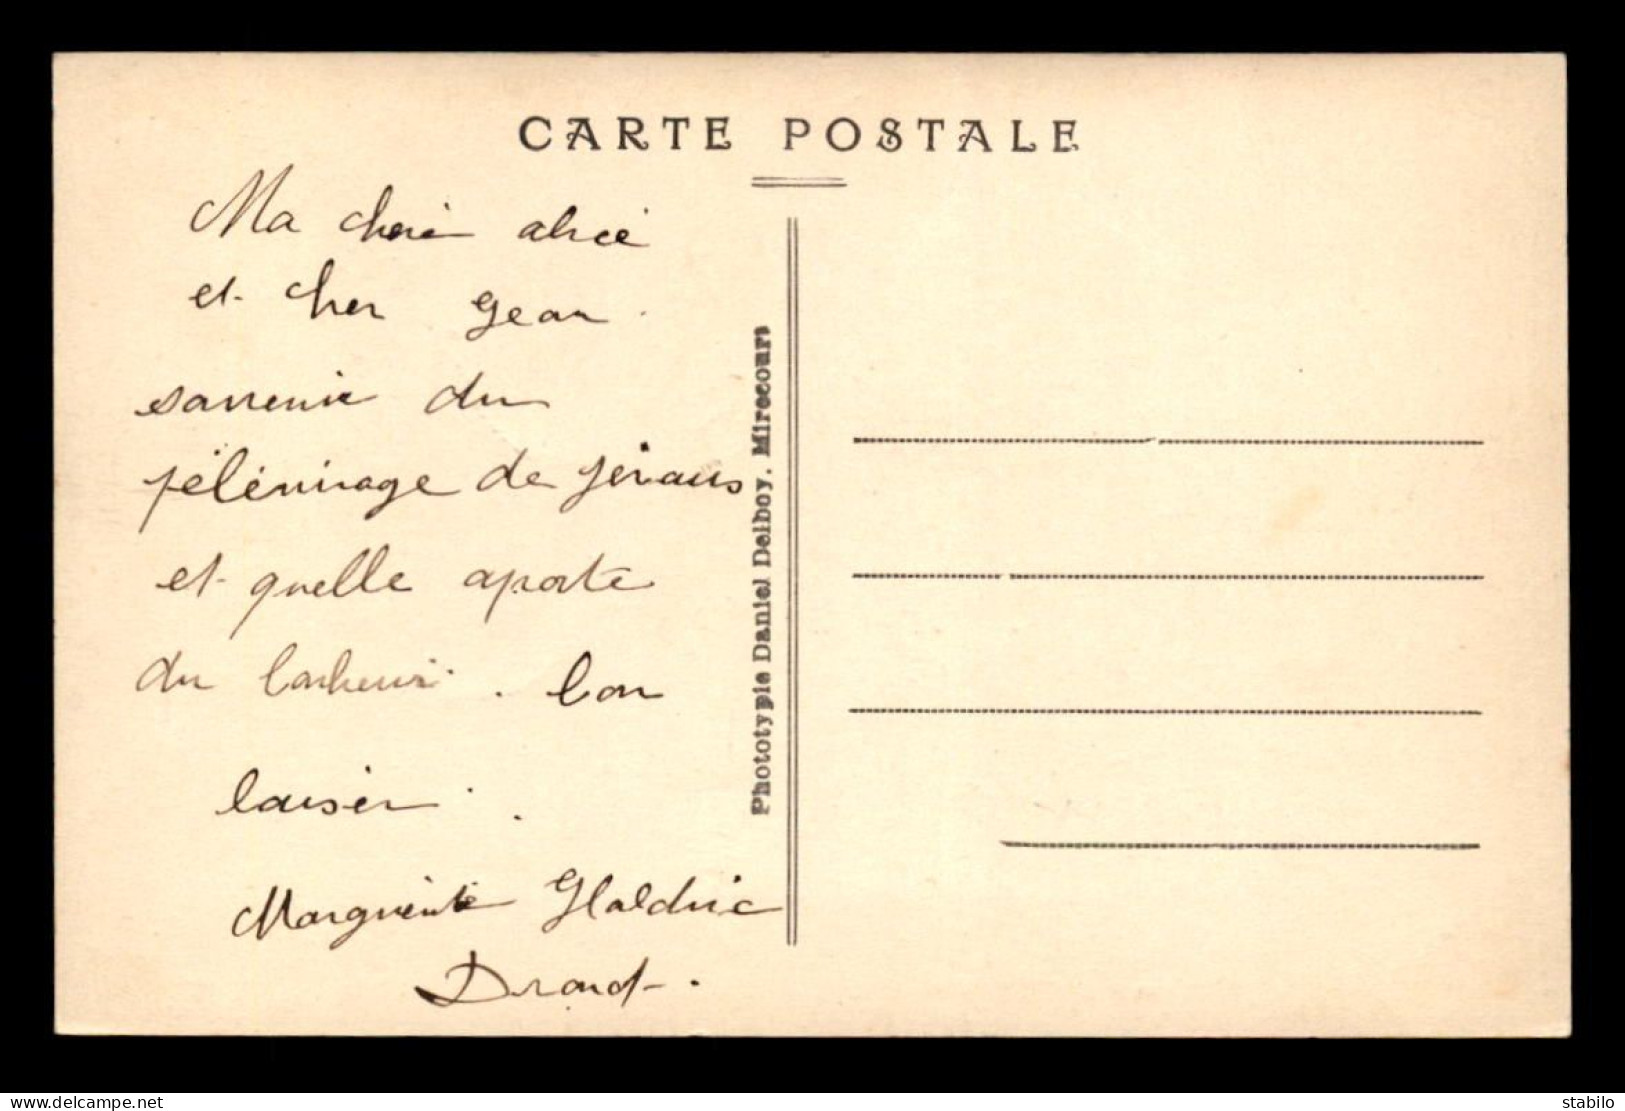 CARTE POSTALE
Ma cheré alicé
et cher Jean.
souvenir du
pélérinage de
et quelle aporte
du bonheur. bon
baiser.
Marguerite
Phototypie Daniel Delboy, Mirecourt
www.delcampe.net
stabilo